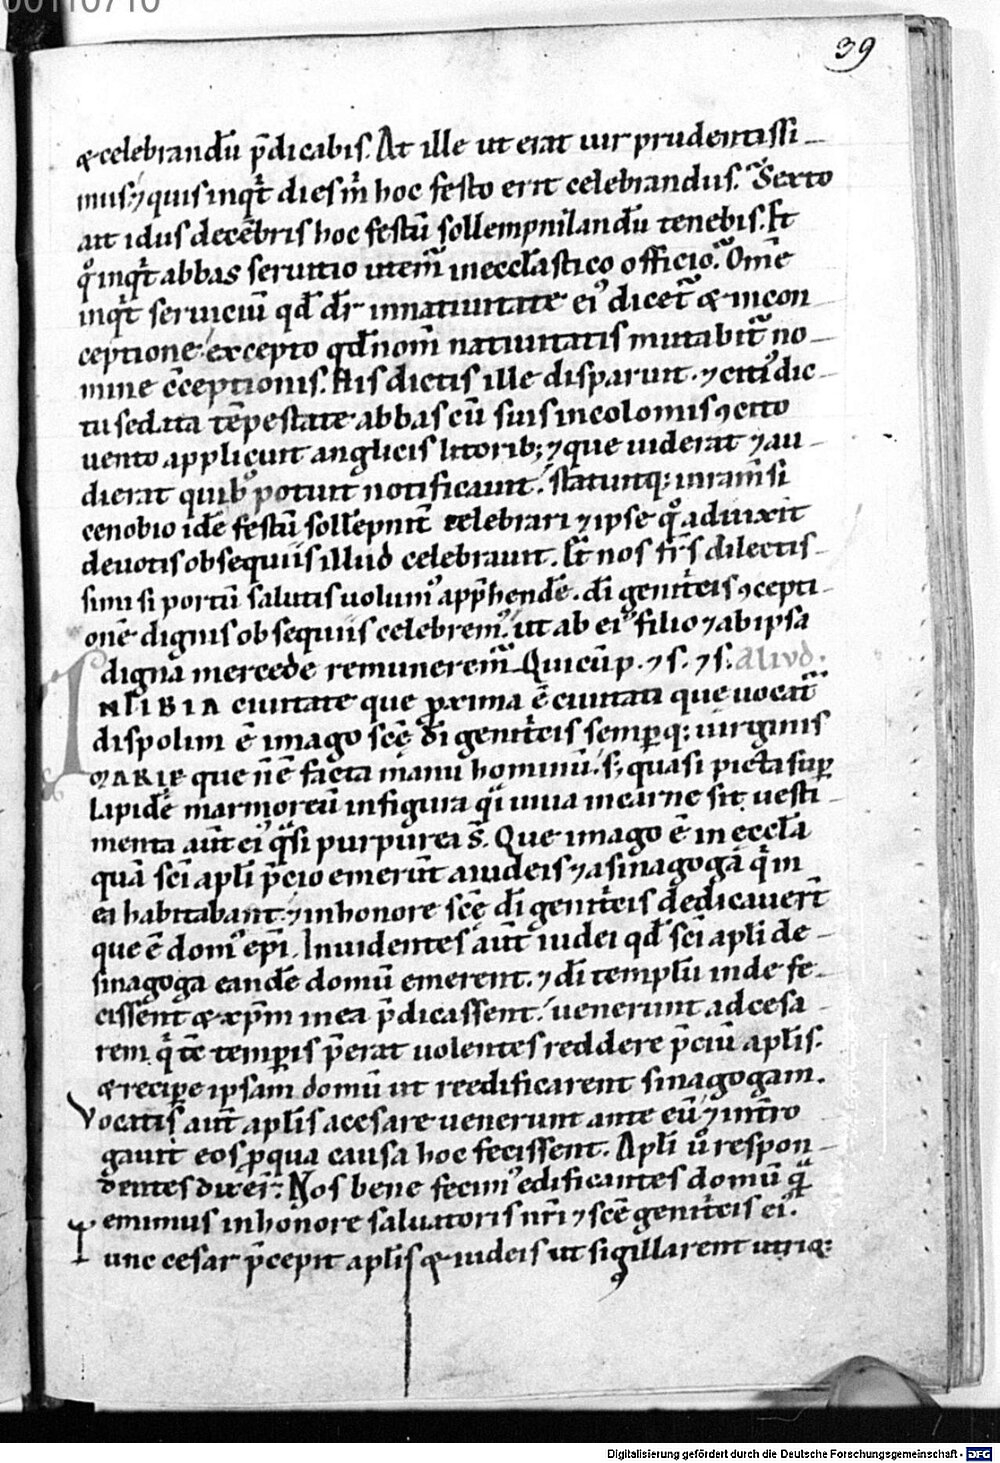 00110710
39
& celebrandū p̄dicabis. At ille ut erat uir prudentissi-
mus; ⁊ quis inqͥt dies in̄ hoc festo erit celebrandus. Sexto
ait idus decēbris hoc festū sollempnizandū tenebis. Et
qͦ inqͥt abbas seruitio utem̄ in eccl̄astico officio. Om̄e
inqͥt seruiciū qd̄ dr̄ in natiuitate ei᷒ dicet᷑ & in con-
ceptione; excepto qd̄ nom̄ natiuitatis mutabit᷑ no-
mine c̄ceptionis. His dictis ille disparuit. ⁊ citi᷒ dic-
tu sedata tēpestate abbas cū suis incolomis ꝯ cito
uento applicuit anglicis litorib; ⁊ que uiderat ⁊ au-
dierat quib᷒ potuit notificauit. statuitq; in ram̄si
cenobio idē festū sollēpnit̄ celebrari ⁊ ipse qͦ aduixit
deuotis obsequiis illud celebrauit. Et nos fr̄s dilectis-
simi si portū salutis uolum᷒ app̄hendē. dī genitͥcis ꝯcepti-
onē dignis obsequiis celebrem᷒. ut ab ei᷒ filio ⁊ ab ipsa
digna mercede remunerem᷑. Quicū p. ⁊ s. ⁊ s. Aliud.
IN LIBIA ciuitate que ꝓxima ē ciuitati que uocat᷑
dispolim ē imago scē dī genitͥcis semperq; uirginis
MARIE que n̄ ē facta manu hominū. s; quasi picta sup
Lapidē marmoreū in figura qͣ uiua in carne sit. uesti-
menta aūt ei᷒ qͣsi purpurea s̄. Que imago ē in eccl̄a
quā sc̄i apl̄i p̄cio emerūt a iudeis ⁊ a sinagoga qͥ in
ea habitabant. ⁊ in honore scē dī genitͥcis dedicauert̄
que ē dom᷒ ep̄i. Inuidentes aūt iudei qd̄ sc̄i apl̄i de-
sinagoga eandē domū emerent. ⁊ dī templū inde fe-
cissent & xp̄m in ea p̄dicassent; uenerunt ad cesa-
rem. qͥ tc̄ temporis p̄erat uolentes reddere p̄ciū apl̄is.
& recipe ipsam domū ut reedificarent sinagogam.
Vocatis aūt apl̄is a cesare uenerunt ante eū; ⁊ int̄ro
gauit eos pro qua causa hoc fecissent. Apl̄i ū respon-
dentes dixer̄. Nos bene fecim᷒ edificantes domū qͣ
emimus in honore saluatoris nr̄i ⁊ scē genitͥcis ei᷒.
Tunc cesar p̄cepit apl̄is & iudeis ut sigillarent utriq;
Digitalisierung gefördert durch die Deutsche Forschungsgemeinschaft - DFG